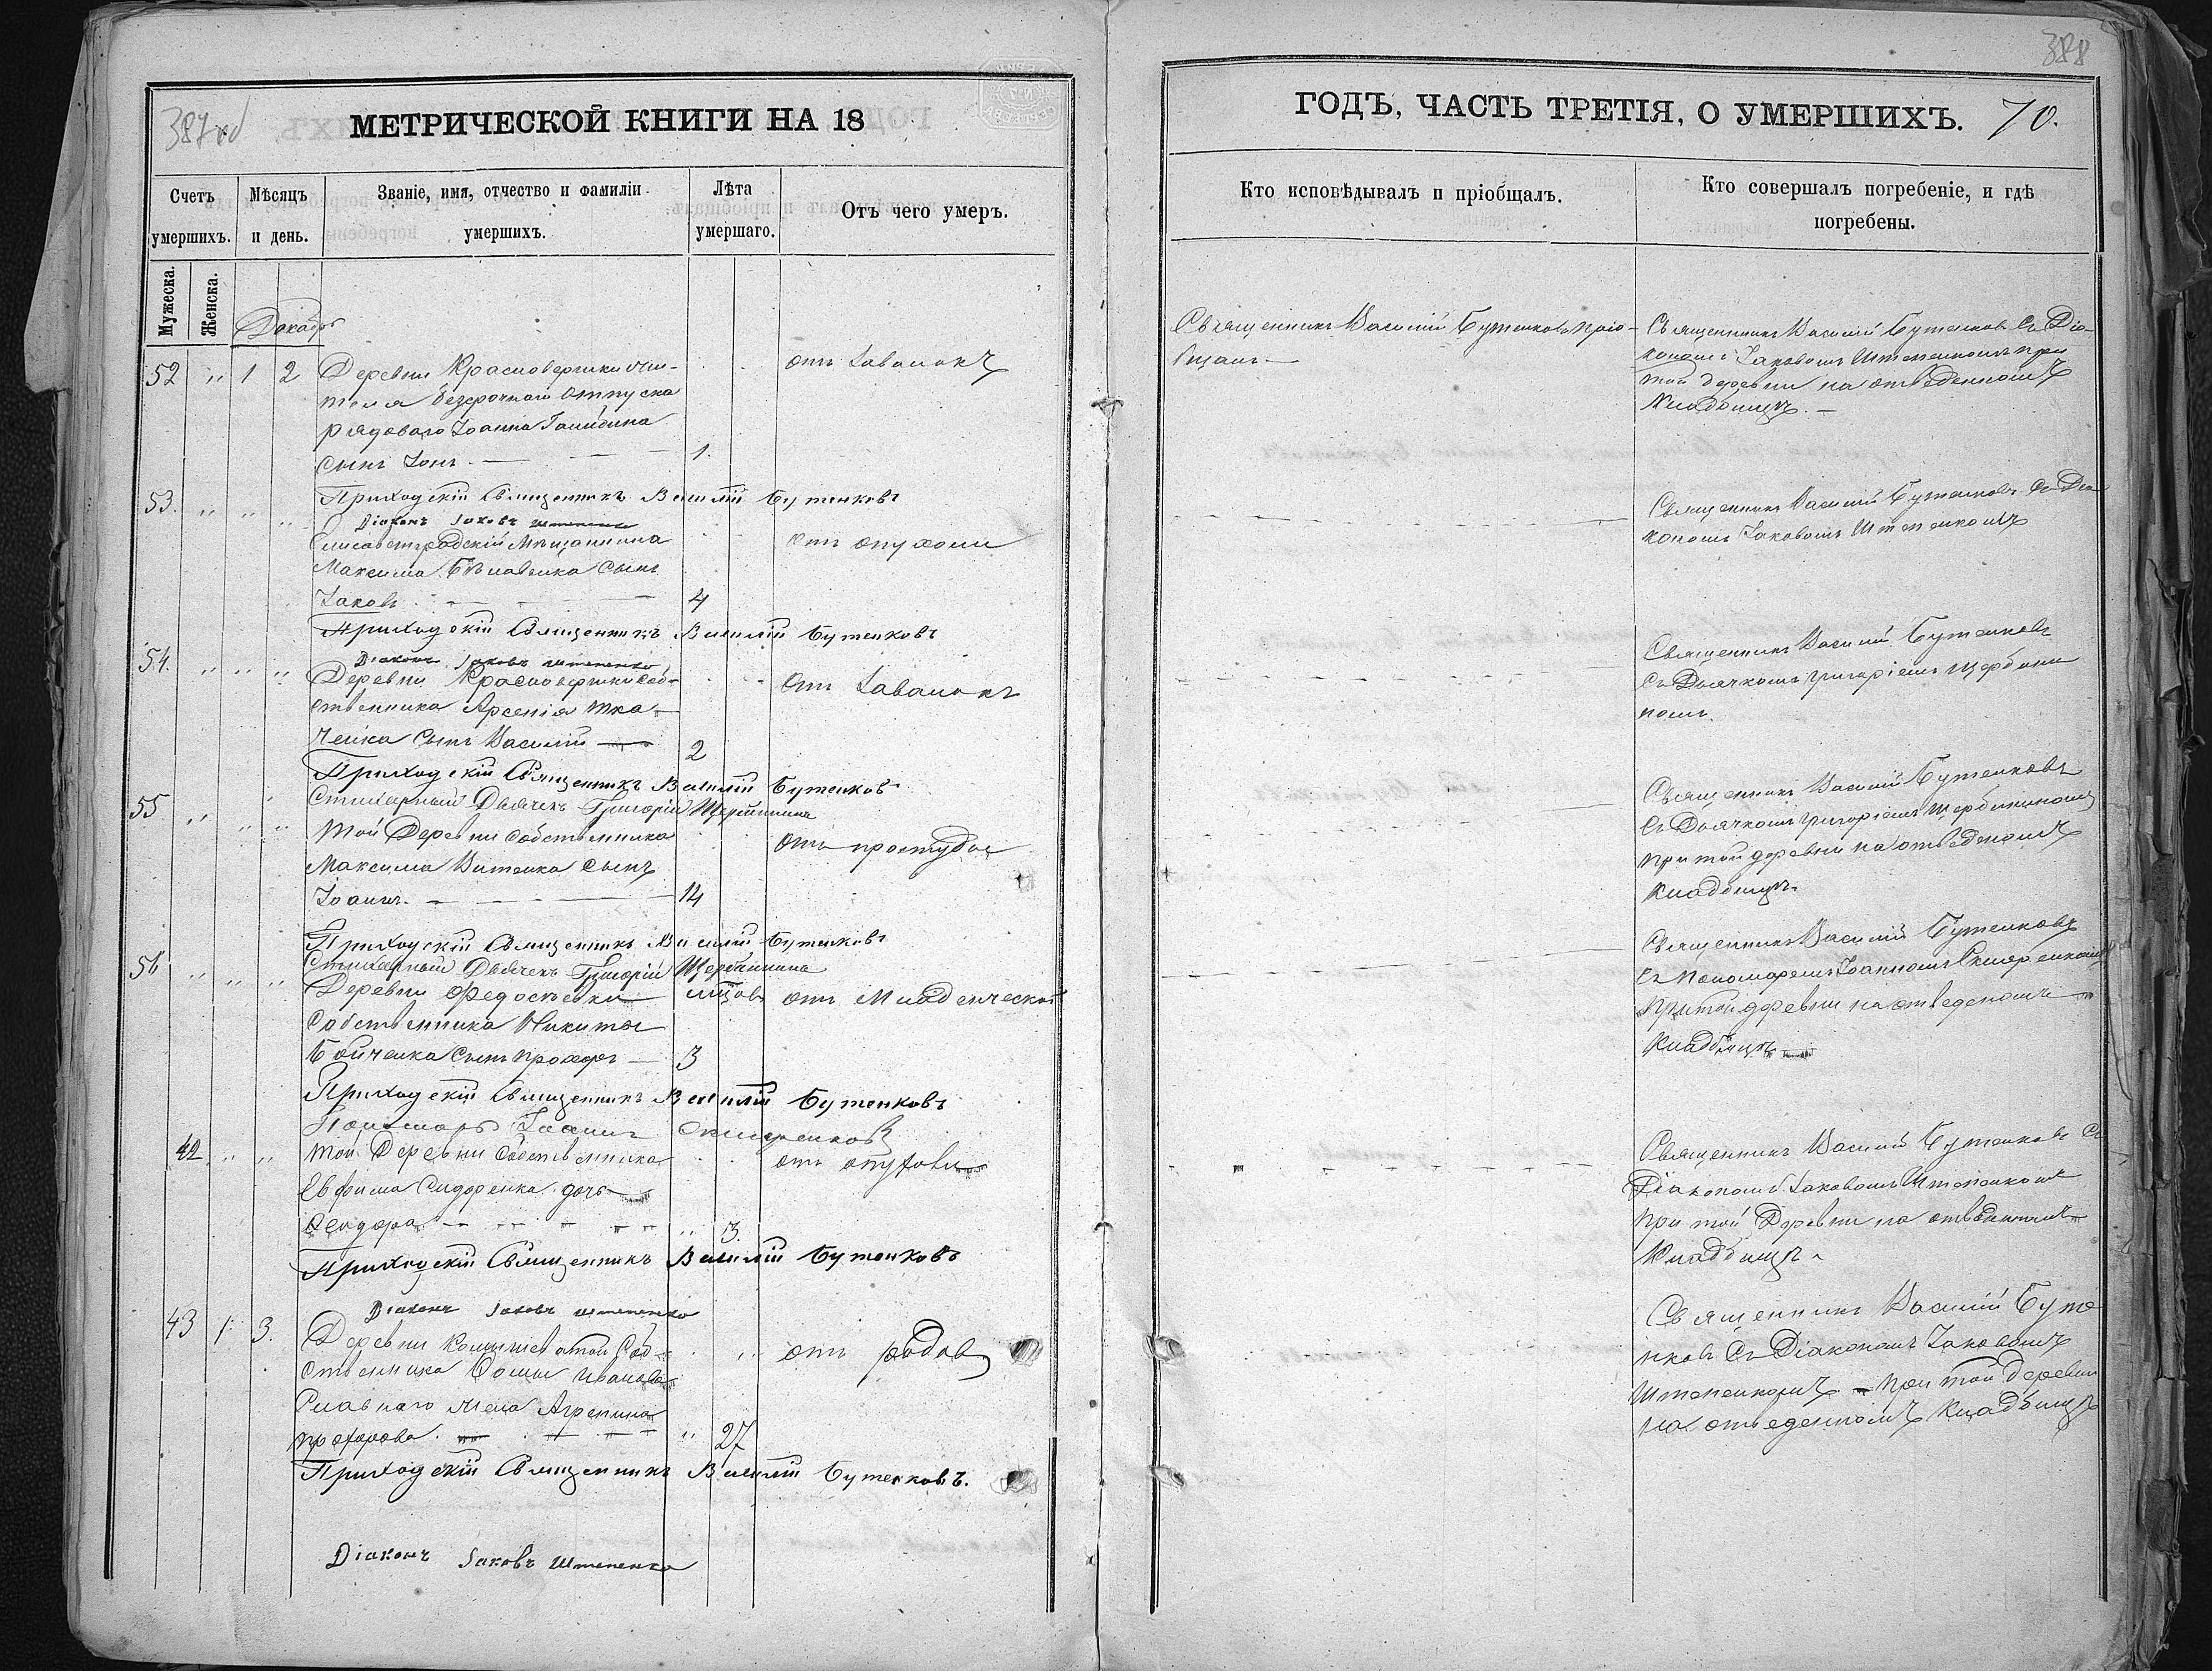 387 об
МЕТРИЧЕСКОЙ КНИГИ НА 18
Счетъ умершихъ.
Мѣсяцъ и день.
Званіе, имя, отчество и фамиліи умершихъ.
Лѣта умершаго.
Отъ чего умеръ.
Мужеска.
Женска.
Декабрь
52 " 1 2 Деревни Красновершки жи-
теля безсрочнаго отпуска
рядоваго Іоанна
сынъ Іонъ. — 1.
Приходскій Священникъ Василій Бутенковъ
Діаконъ Іаковъ Штепенко
53. " " " Елисаветградскій Мѣщанина
отъ опухоли
Максима сынъ
Іаковъ — 4
Приходскій Священникъ Василій Бутенковъ
Діаконъ Іаковъ Штепенко
54. " " " Деревни Красновершки соб-
ственника Арсенія Тка-
ченка сынъ Василій — 2
Приходскій Священникъ Василій Бутенковъ
Стихарный Дьячекъ Григорій
55 " " " той Деревни собственника
отъ простуды
Максима Витенка сынъ
Іоаннъ. — 14
Приходскій Священникъ Василій Бутенковъ
Стихарный Дьячекъ Григорій
56 " " " Деревни Федосѣевки
мѣсцовъ
отъ Младенческой
собственника Никиты
Бойченка сынъ Прохоръ — 3
Приходскій Священникъ Василій Бутенковъ
Пономарь Іоаннъ
42 " " той Деревни собственника
отъ опухоли
Евфима Сидоренка дочь
Феодора — " 3.
Приходскій Священникъ Василій Бутенковъ
Діаконъ Іаковъ Штепенко
43 1 3. Деревни Камышеватой Соб-
отъ родовъ
ственника Фомы Иванова
Славнаго жена Агрепина
Прохорова. — " 27
Приходскій Священникъ Василій Бутенковъ.
Діаконъ Іаковъ Штепенко
388
ГОДЪ, ЧАСТЬ ТРЕТІЯ, О УМЕРШИХЪ. 70.
Кто исповѣдывалъ и пріобщалъ.
Кто совершалъ погребеніе, и гдѣ погребены.
Священникъ Василій Бутенковъ пріо-
бщалъ —
Священникъ Василій Бутенковъ съ Діа-
кономъ Іаковомъ Штепенкомъ при
той деревни на отведенномъ
Кладбищѣ. —
Священникъ Василій Бутенковъ съ Діа
кономъ Іаковомъ Штепенкомъ
Священникъ Василій Бутенковъ
съ Дьячкомъ Григоріемъ Щербини
номъ.
Священникъ Василій Бутенковъ
съ Дьячкомъ Григоріемъ Щербининомъ
при той деревни на отведеномъ
Кладбищѣ.
Священникъ Василій Бутенковъ
съ Пономаремъ Іоанномъ
при той деревни на отведеномъ
Кладбищѣ —
Священникъ Василій Бутенковъ съ
Діакономъ Іаковомъ Штепенкомъ
при той Деревни на отведенномъ
Кладбищѣ.
Священникъ Василій Буте
нковъ съ Діакономъ Іаковомъ
Штепенкомъ — при той деревни
на отведенномъ Кладбищѣ